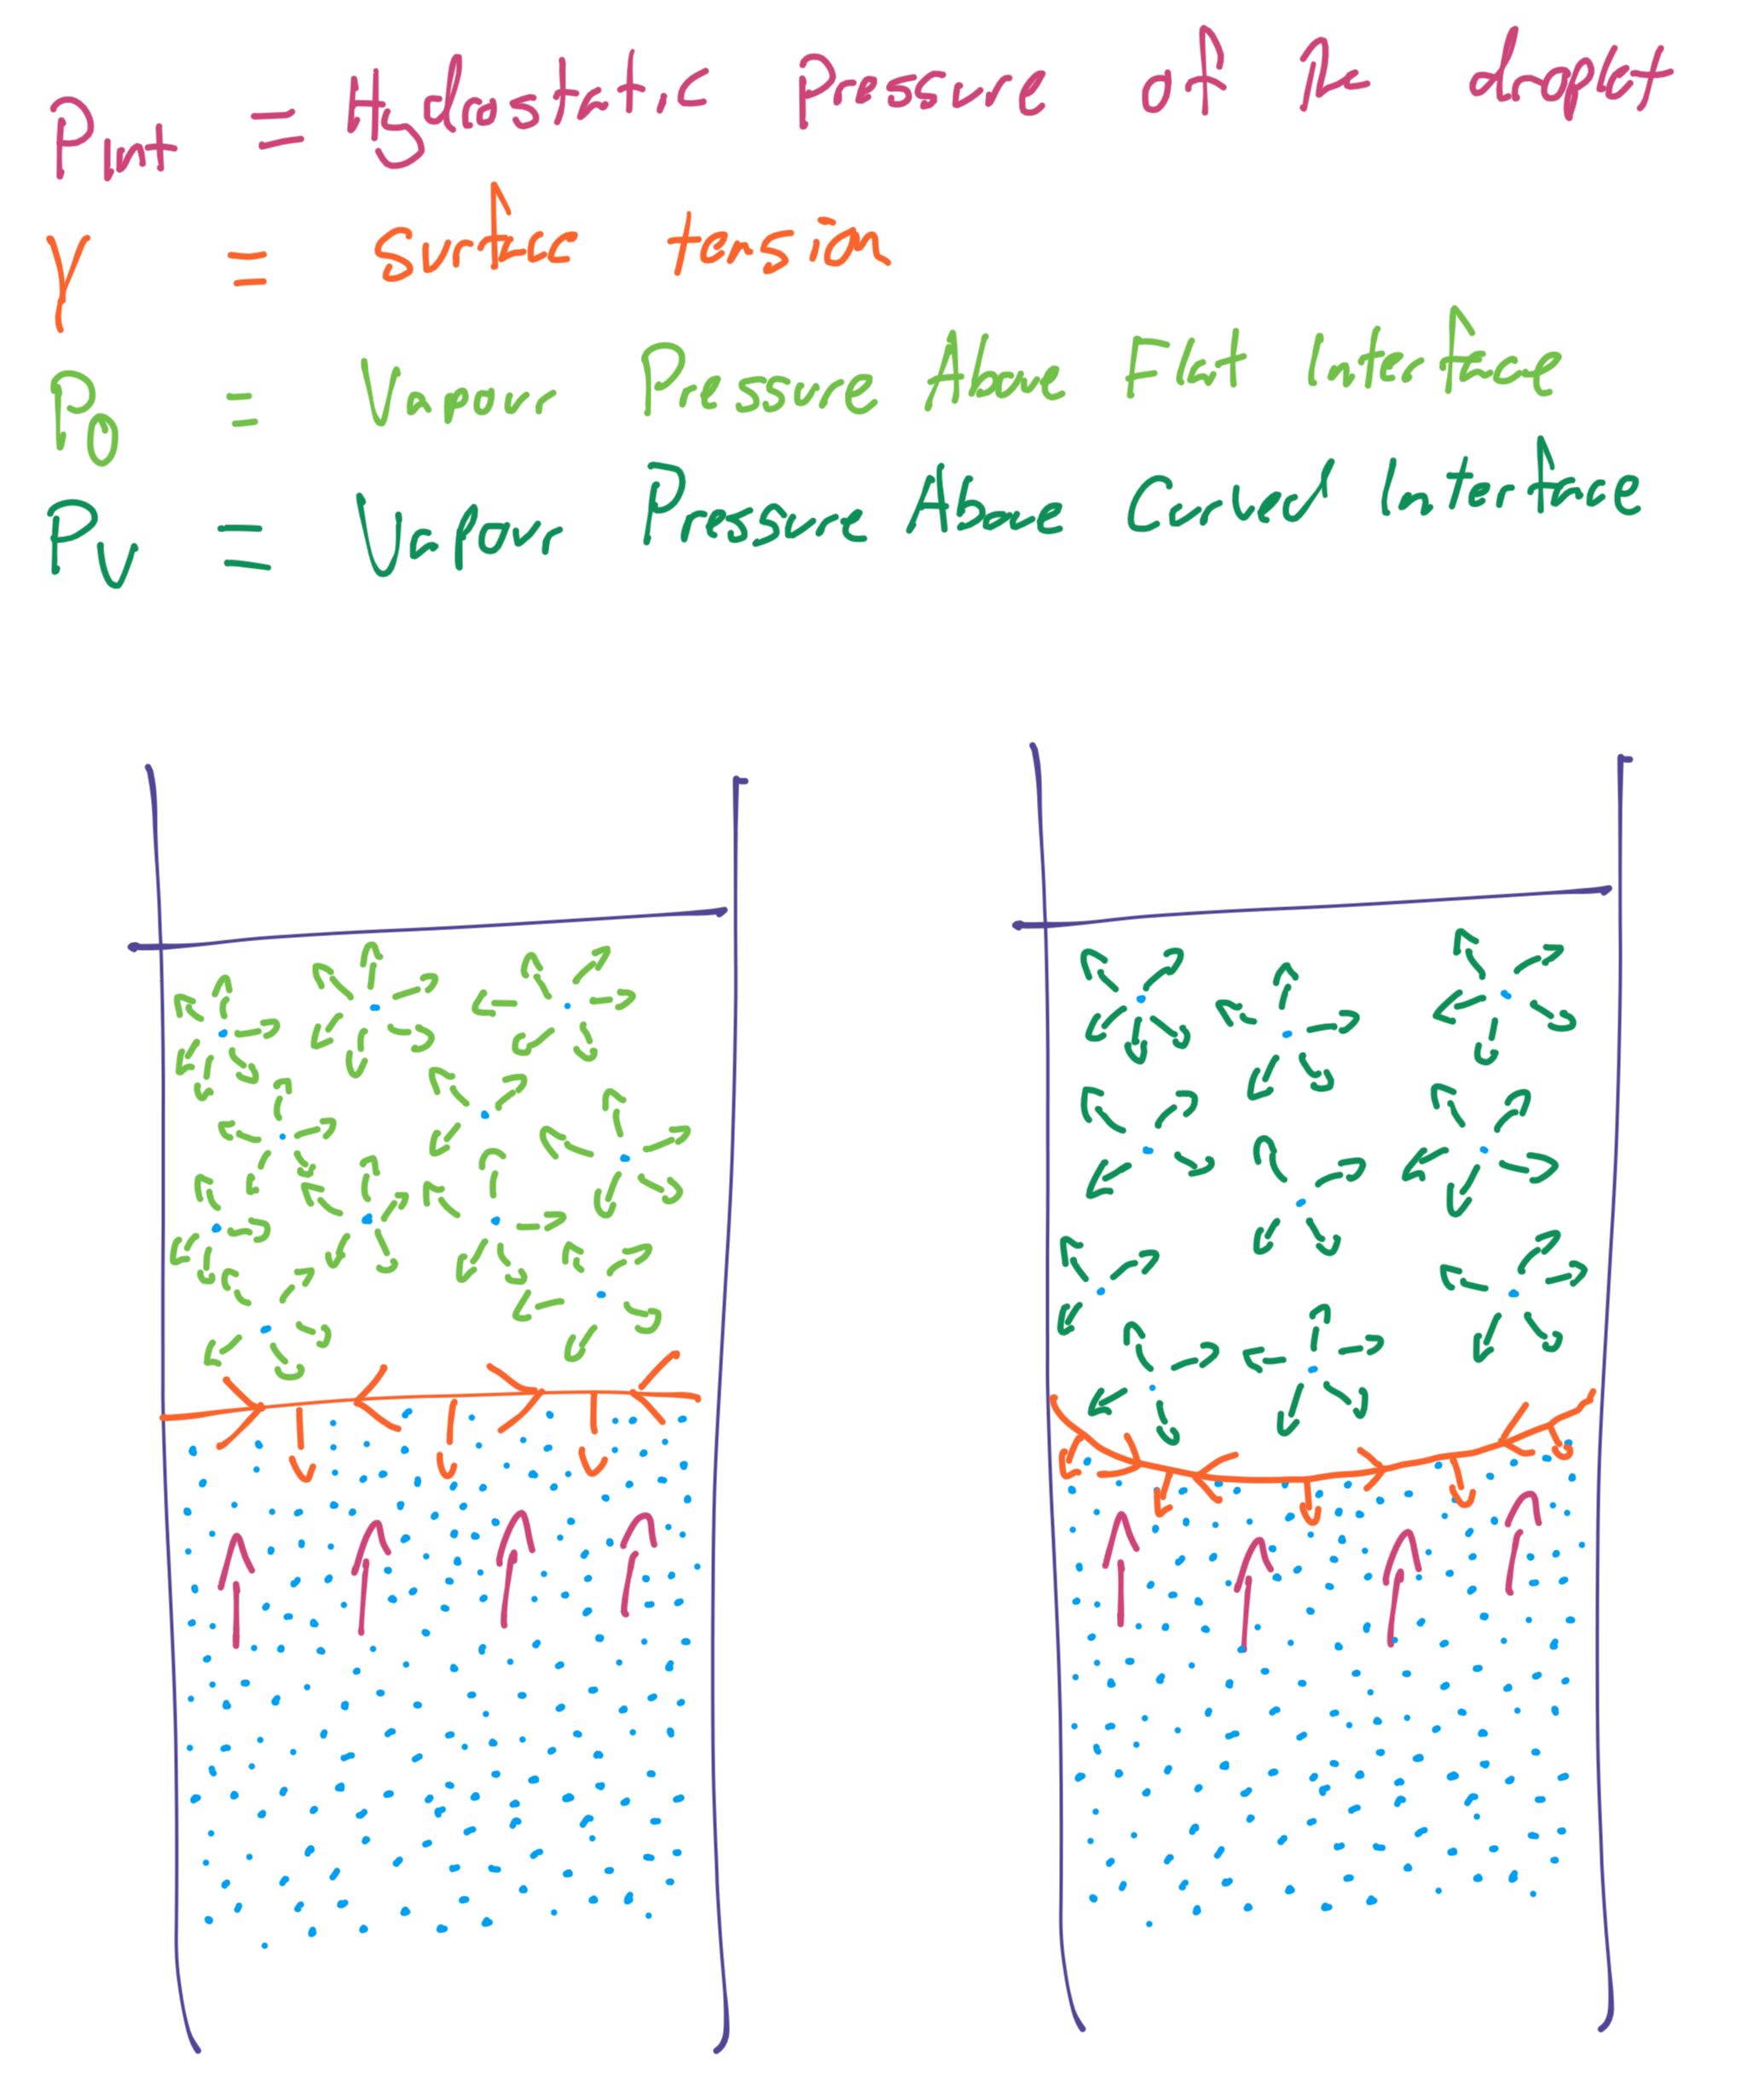 Pint = Hydrostatic Pressure of the droplet
γ = surface tension
P0 = Vapour Pressure Above Flat Interface
Pv = Vapour Pressure Above Curved Interface